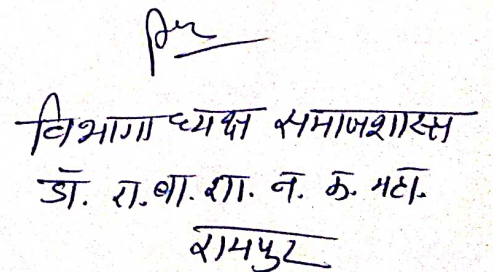 विभागाध्यक्ष समाजशास्त्र
डॉ. रा. बा. शा. न. क. महा.
रामपुर